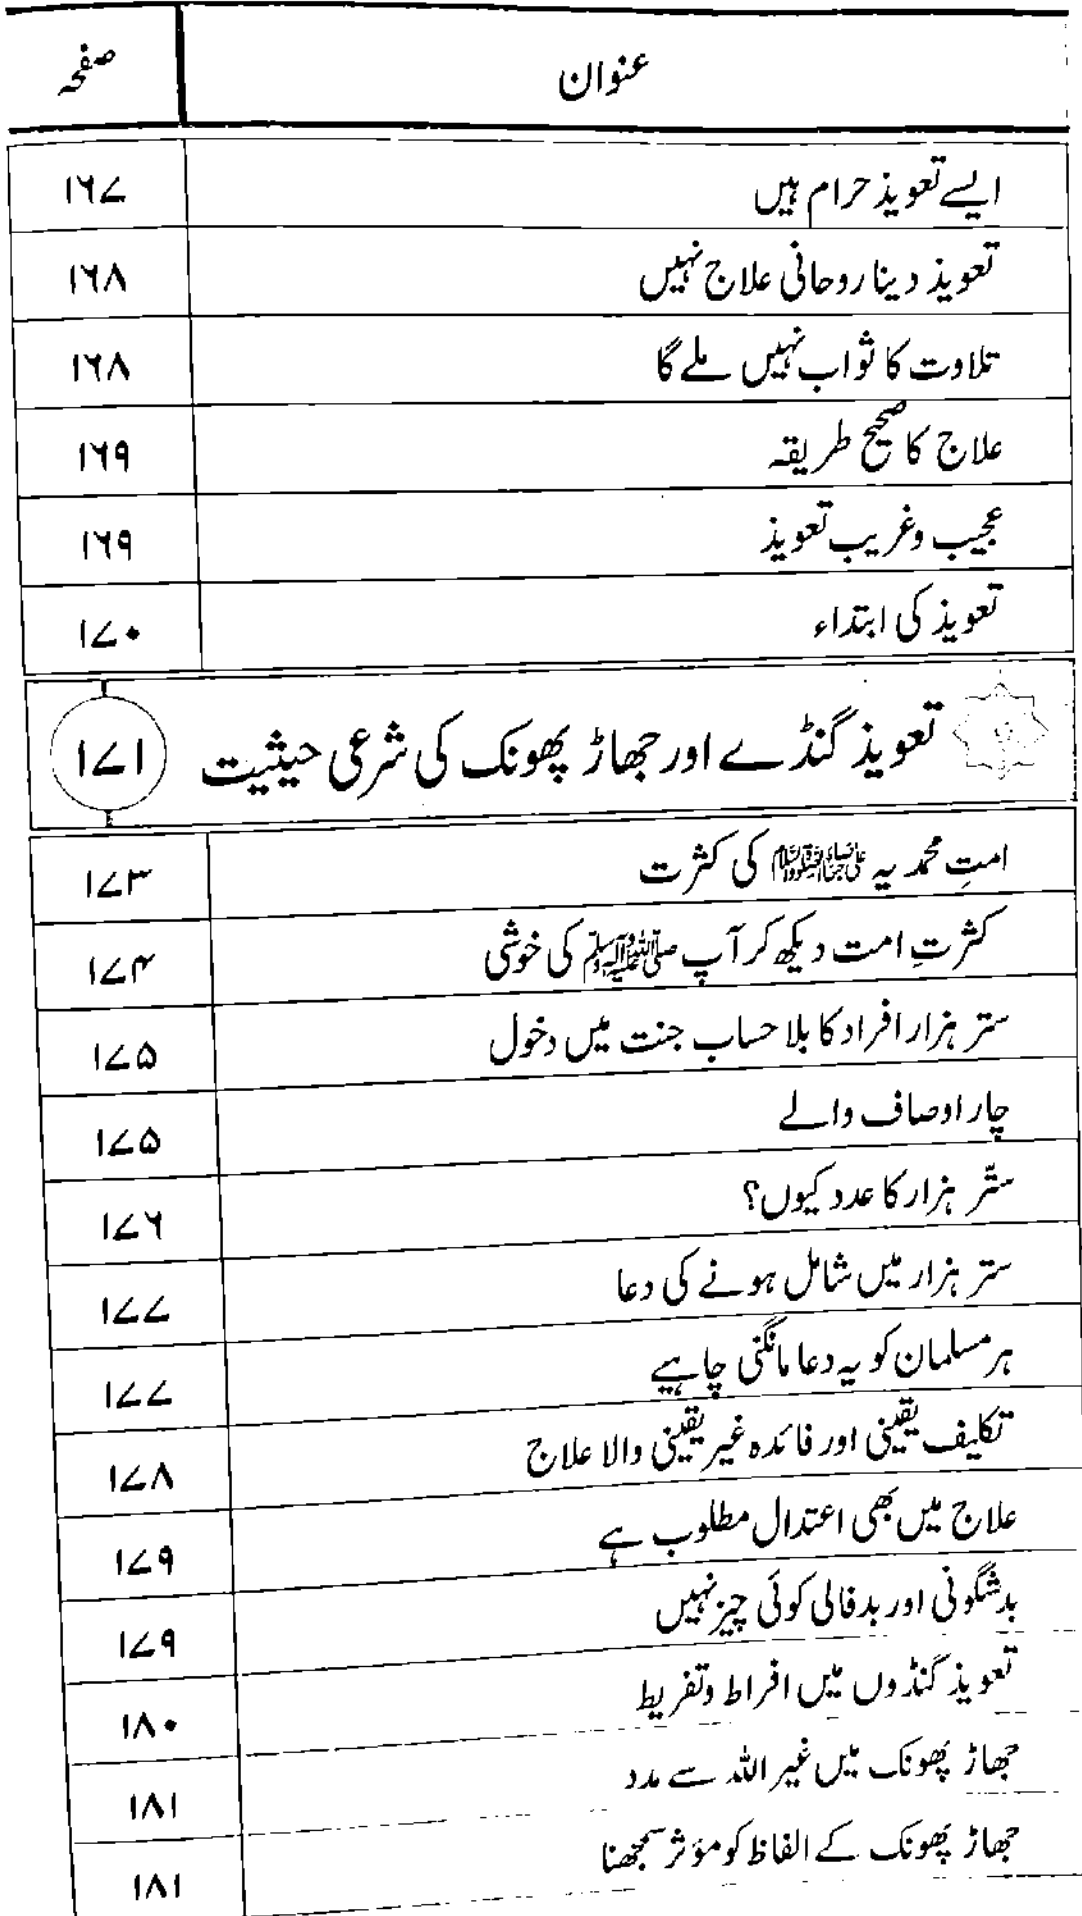 عنوان صفحہ
ایسے تعویذ حرام ہیں ۱۶۷
تعویذ دینا روحانی علاج نہیں ۱۶۸
تلاوت کا ثواب نہیں ملے گا ۱۶۸
علاج کا صحیح طریقہ ۱۶۹
عجیب وغریب تعویذ ۱۶۹
تعویذ کی ابتداء ۱۷۰
تعویذ گنڈے اور جھاڑ پھونک کی شرعی حیثیت ۱۷۱
امتِ محمدیہ کی کثرت ۱۷۳
کثرتِ امت دیکھ کر آپ ﷺ کی خوشی ۱۷۴
ستر ہزار افراد کا بلا حساب جنت میں دخول ۱۷۵
چار اوصاف والے ۱۷۵
ستّر ہزار کا عدد کیوں؟ ۱۷۶
ستر ہزار میں شامل ہونے کی دعا ۱۷۷
ہر مسلمان کو یہ دعا مانگنی چاہیے ۱۷۷
تکلیف یقینی اور فائدہ غیر یقینی والا علاج ۱۷۸
علاج میں بھی اعتدال مطلوب ہے ۱۷۹
بدشگونی اور بدفالی کوئی چیز نہیں ۱۷۹
تعویذ گنڈوں میں افراط وتفریط ۱۸۰
جھاڑ پھونک میں غیر اللہ سے مدد ۱۸۱
جھاڑ پھونک کے الفاظ کو مؤثر سمجھنا ۱۸۱